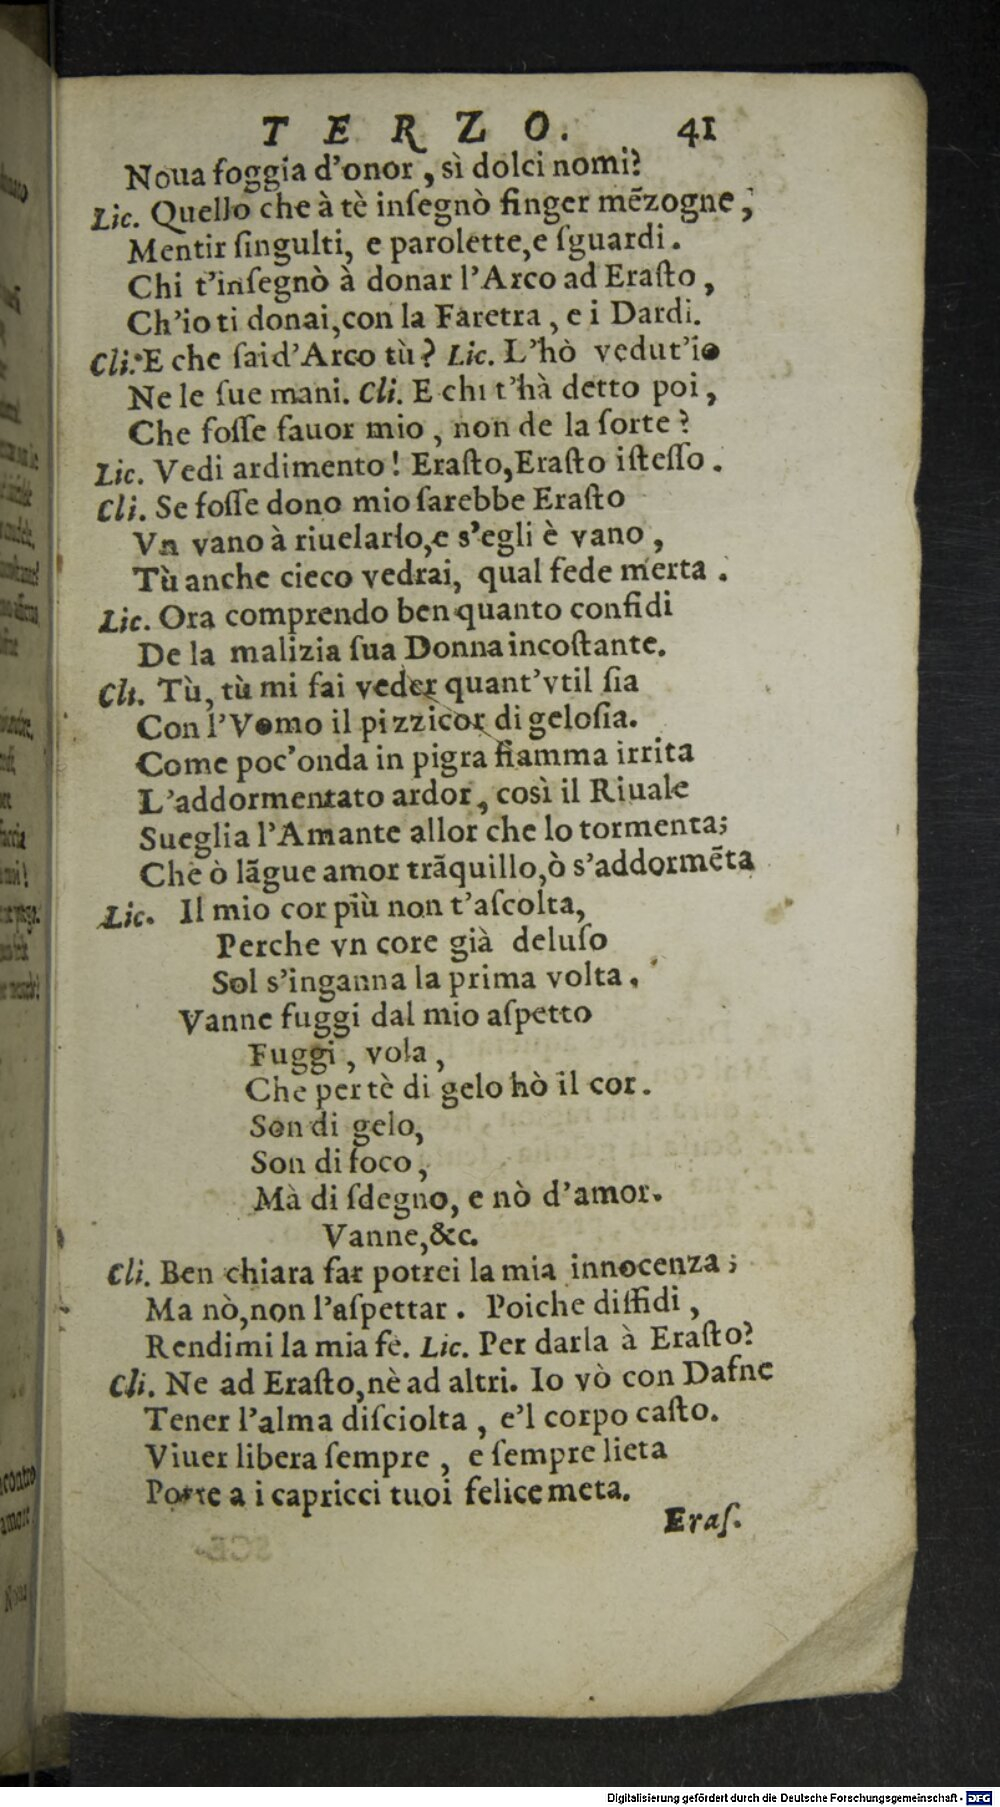 TERZO. 41
Noua foggia d'onor, sì dolci nomi?
Lic. Quello che à tè inſegnò finger mẽzogne,
Mentir ſingulti, e parolette, e ſguardi.
Chi t'inſegnò à donar l'Arco ad Eraſto,
Ch'io ti donai, con la Faretra, e i Dardi.
Cli. E che ſai d'Arco tù? Lic. L'hò vedut'io
Ne le ſue mani. Cli. E chi t'hà detto poi,
Che foſſe fauor mio, non de la ſorte?
Lic. Vedi ardimento! Eraſto, Eraſto iſteſſo.
Cli. Se foſſe dono mio ſarebbe Eraſto
Vn vano à riuelarlo, e s'egli è vano,
Tù anche cieco vedrai, qual fede merta.
Lic. Ora comprendo ben quanto confidi
De la malizia ſua Donna incoſtante.
Cli. Tù, tù mi fai veder quant'vtil ſia
Con l'Vomo il pizzicor di geloſia.
Come poc'onda in pigra fiamma irrita
L'addormentato ardor, così il Riuale
Sueglia l'Amante allor che lo tormenta;
Che ò lãgue amor trãquillo, ò s'addormẽta
Lic. Il mio cor più non t'aſcolta,
Perche vn core già deluſo
Sol s'inganna la prima volta.
Vanne fuggi dal mio aſpetto
Fuggi, vola,
Che per tè di gelo hò il cor.
Son di gelo,
Son di foco,
Mà di ſdegno, e nò d'amor.
Vanne, &c.
Cli. Ben chiara far potrei la mia innocenza;
Ma nò, non l'aſpettar. Poiche diffidi,
Rendimi la mia fè. Lic. Per darla à Eraſto?
Cli. Ne ad Eraſto, nè ad altri. Io vò con Dafne
Tener l'alma diſciolta, e'l corpo caſto.
Viuer libera ſempre, e ſempre lieta
Porre a i capricci tuoi felice meta.
Eraſ.
Digitalisierung gefördert durch die Deutsche Forschungsgemeinschaft - DFG